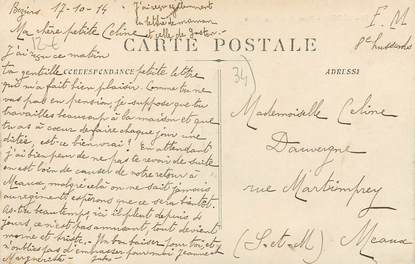 Beziers 17-10-14 J'ai reçu également
la lettre de maman
et celle de Gaston
F. M
8e hussards
Ma chère petite Celine
CARTE POSTALE
J'ai reçu ce matin
34
CORRESPONDANCE
ADRESSE
ta gentille petite lettre
qui m'a fait bien plaisir. Comme tu ne
vas pas en pension, je suppose que tu
travailles beaucoup à la maison et que
tu as à coeur de faire chaque jour une
dictée, est-ce bien vrai! En attendant
j'ai bien peur de ne pas te revoir de suite
on est loin de causer de notre retour à
Meaux, malgré cela on ne sait jamais
au régiment, espérons que ce sera bientôt.
As-tu beau temps, ici il pleut depuis 4
jours, ce n'est pas amusant, tout devient
morne et triste. Un bon baiser pour toi, et
n'oublies pas d'embrasser pour moi Jeanne et
Marguerite. Jules
Mademoiselle Celine
Dauvergne
rue Martimprey
(S-et-M) Meaux